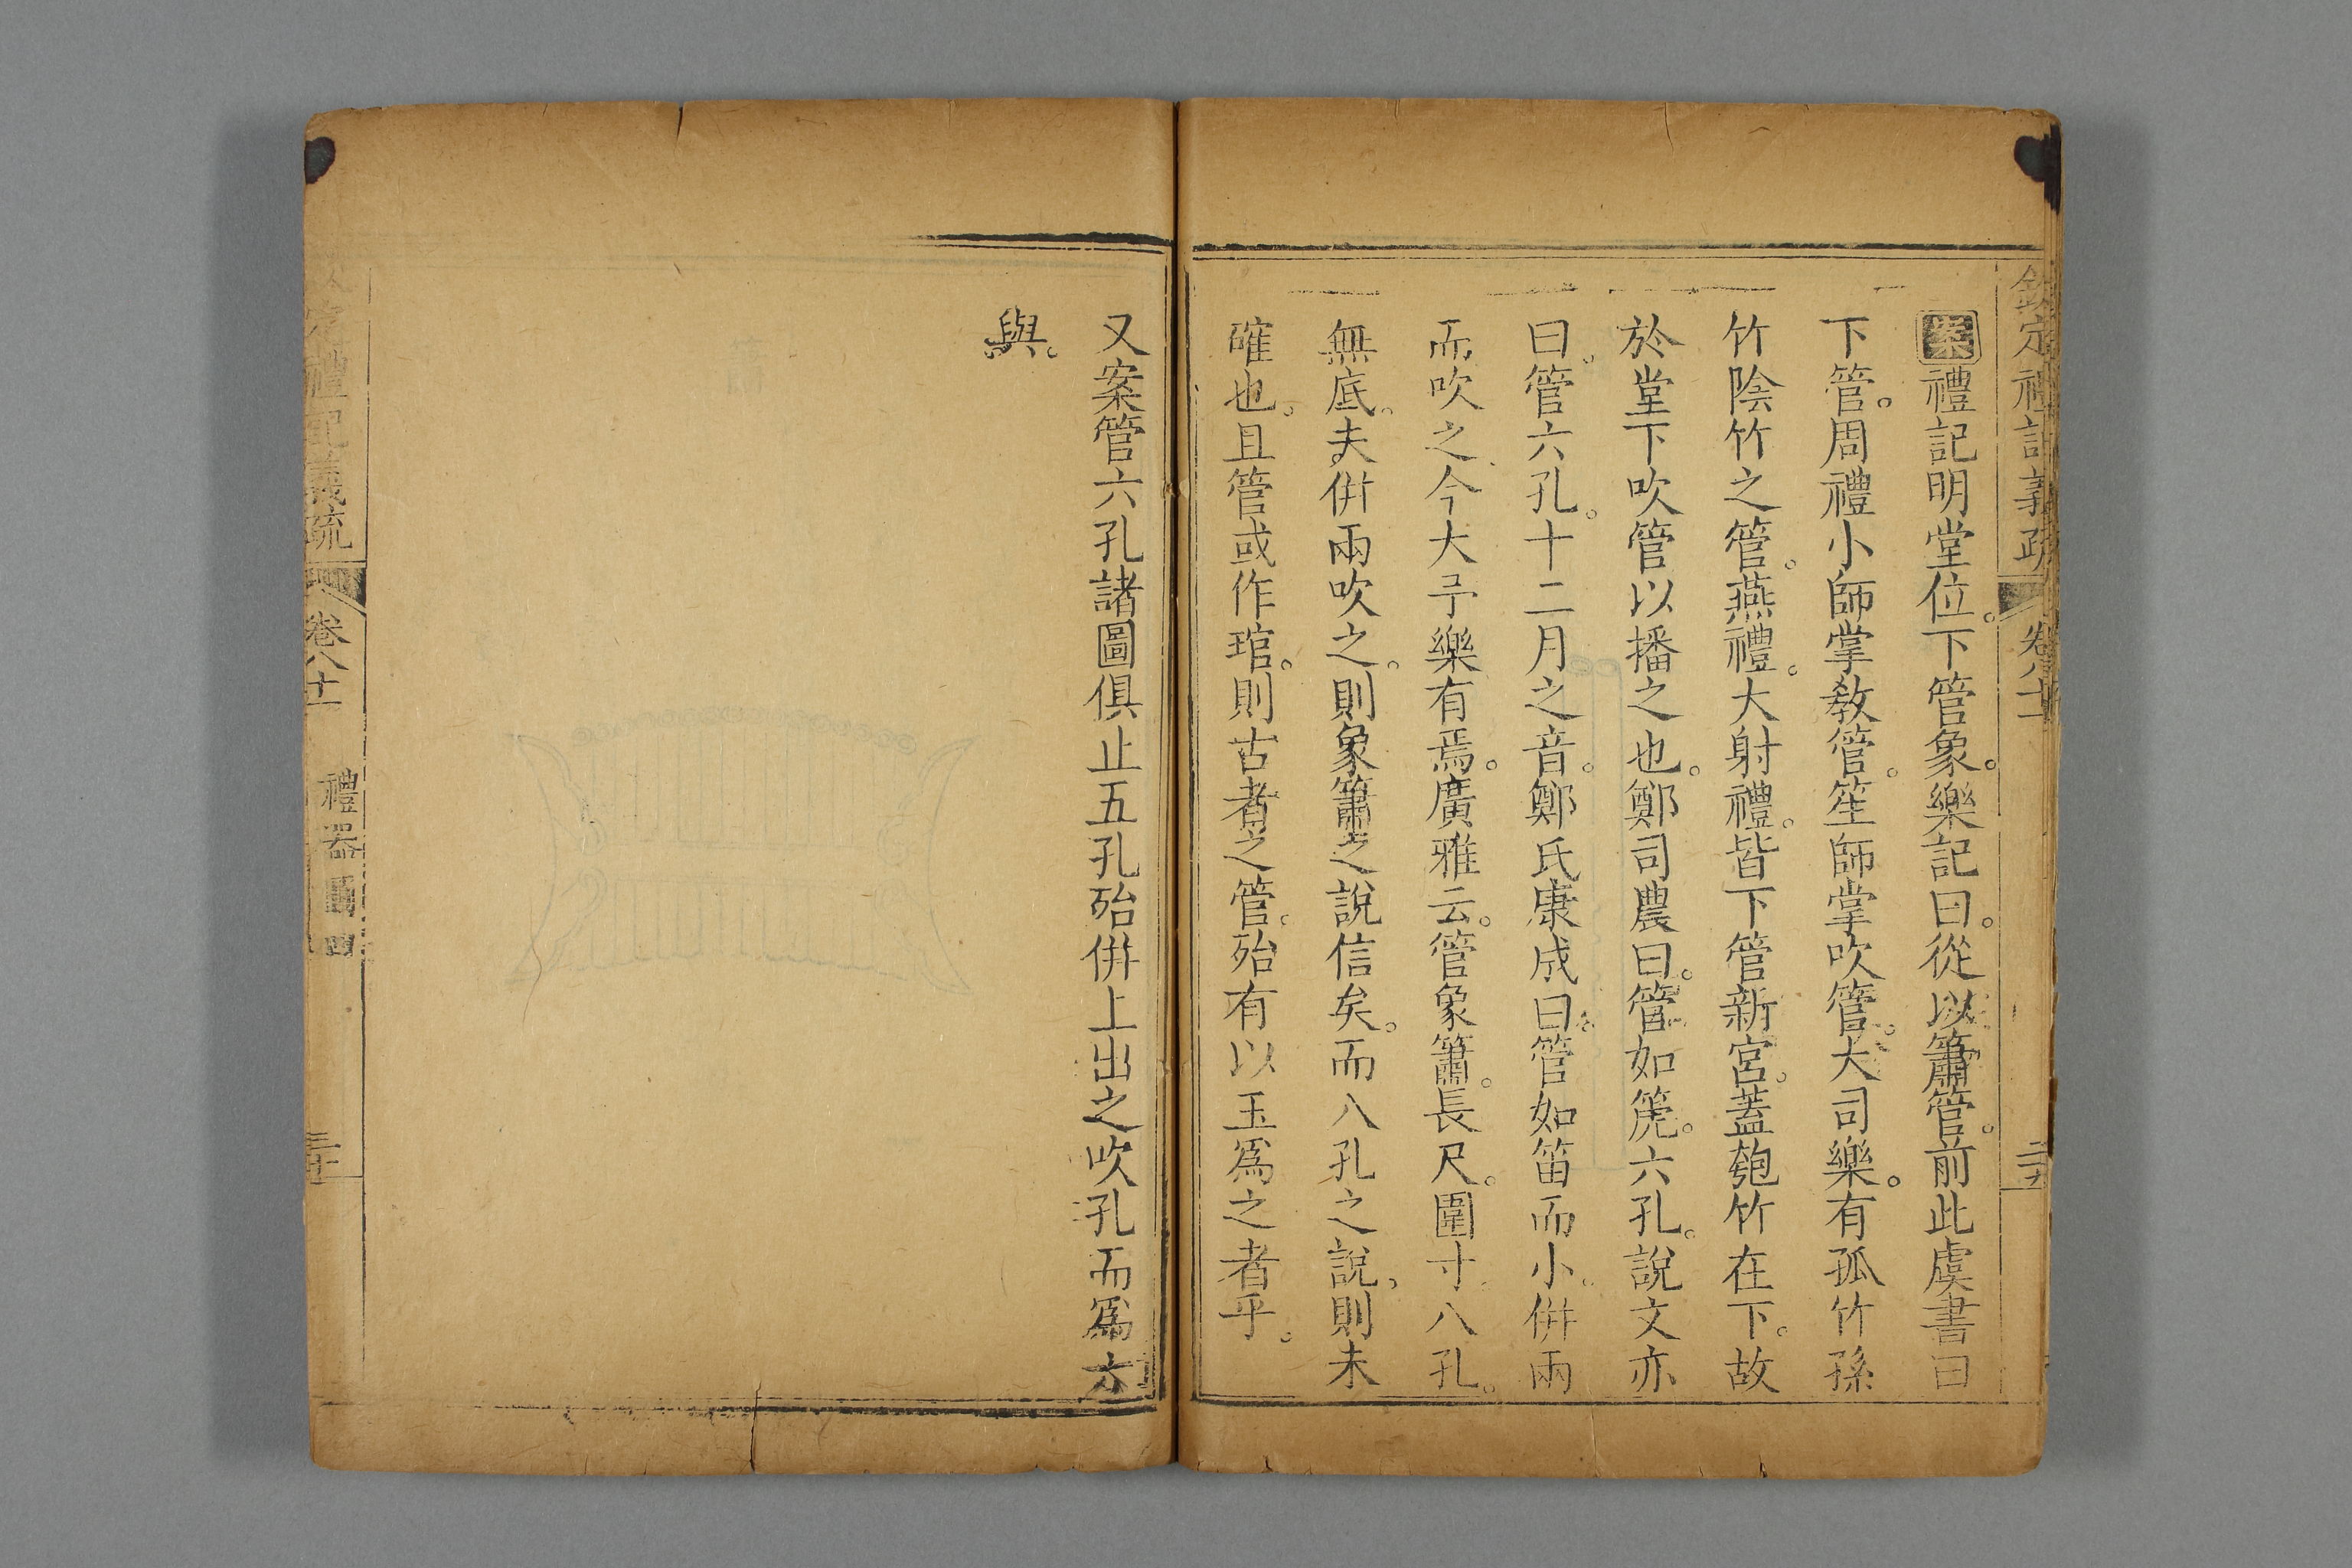 欽定禮記義疏 卷八十一 二十九
案禮記明堂位。下管象。樂記曰。從以簫管。前此虞書曰
下管。周禮小師掌教管。笙師掌吹管。大司樂。有孤竹孫
竹陰竹之管。燕禮。大射禮。皆下管新宮。蓋匏竹在下。故
於堂下吹管以播之也。鄭司農曰。管如篪。六孔。說文亦
曰。管六孔。十二月之音。鄭氏康成曰。管如笛而小。併兩
而吹之。今大予樂有焉。廣雅云。管象簫。長尺。圍寸。八孔。
無底。夫併兩吹之。則象簫之說信矣。而八孔之說。則未
確也。且管或作琯。則古者之管。殆有以玉爲之者乎。
又案管六孔諸圖俱止五孔殆併上出之吹孔而爲六
與。
定禮記義疏 卷八十一 禮器圖四 三十